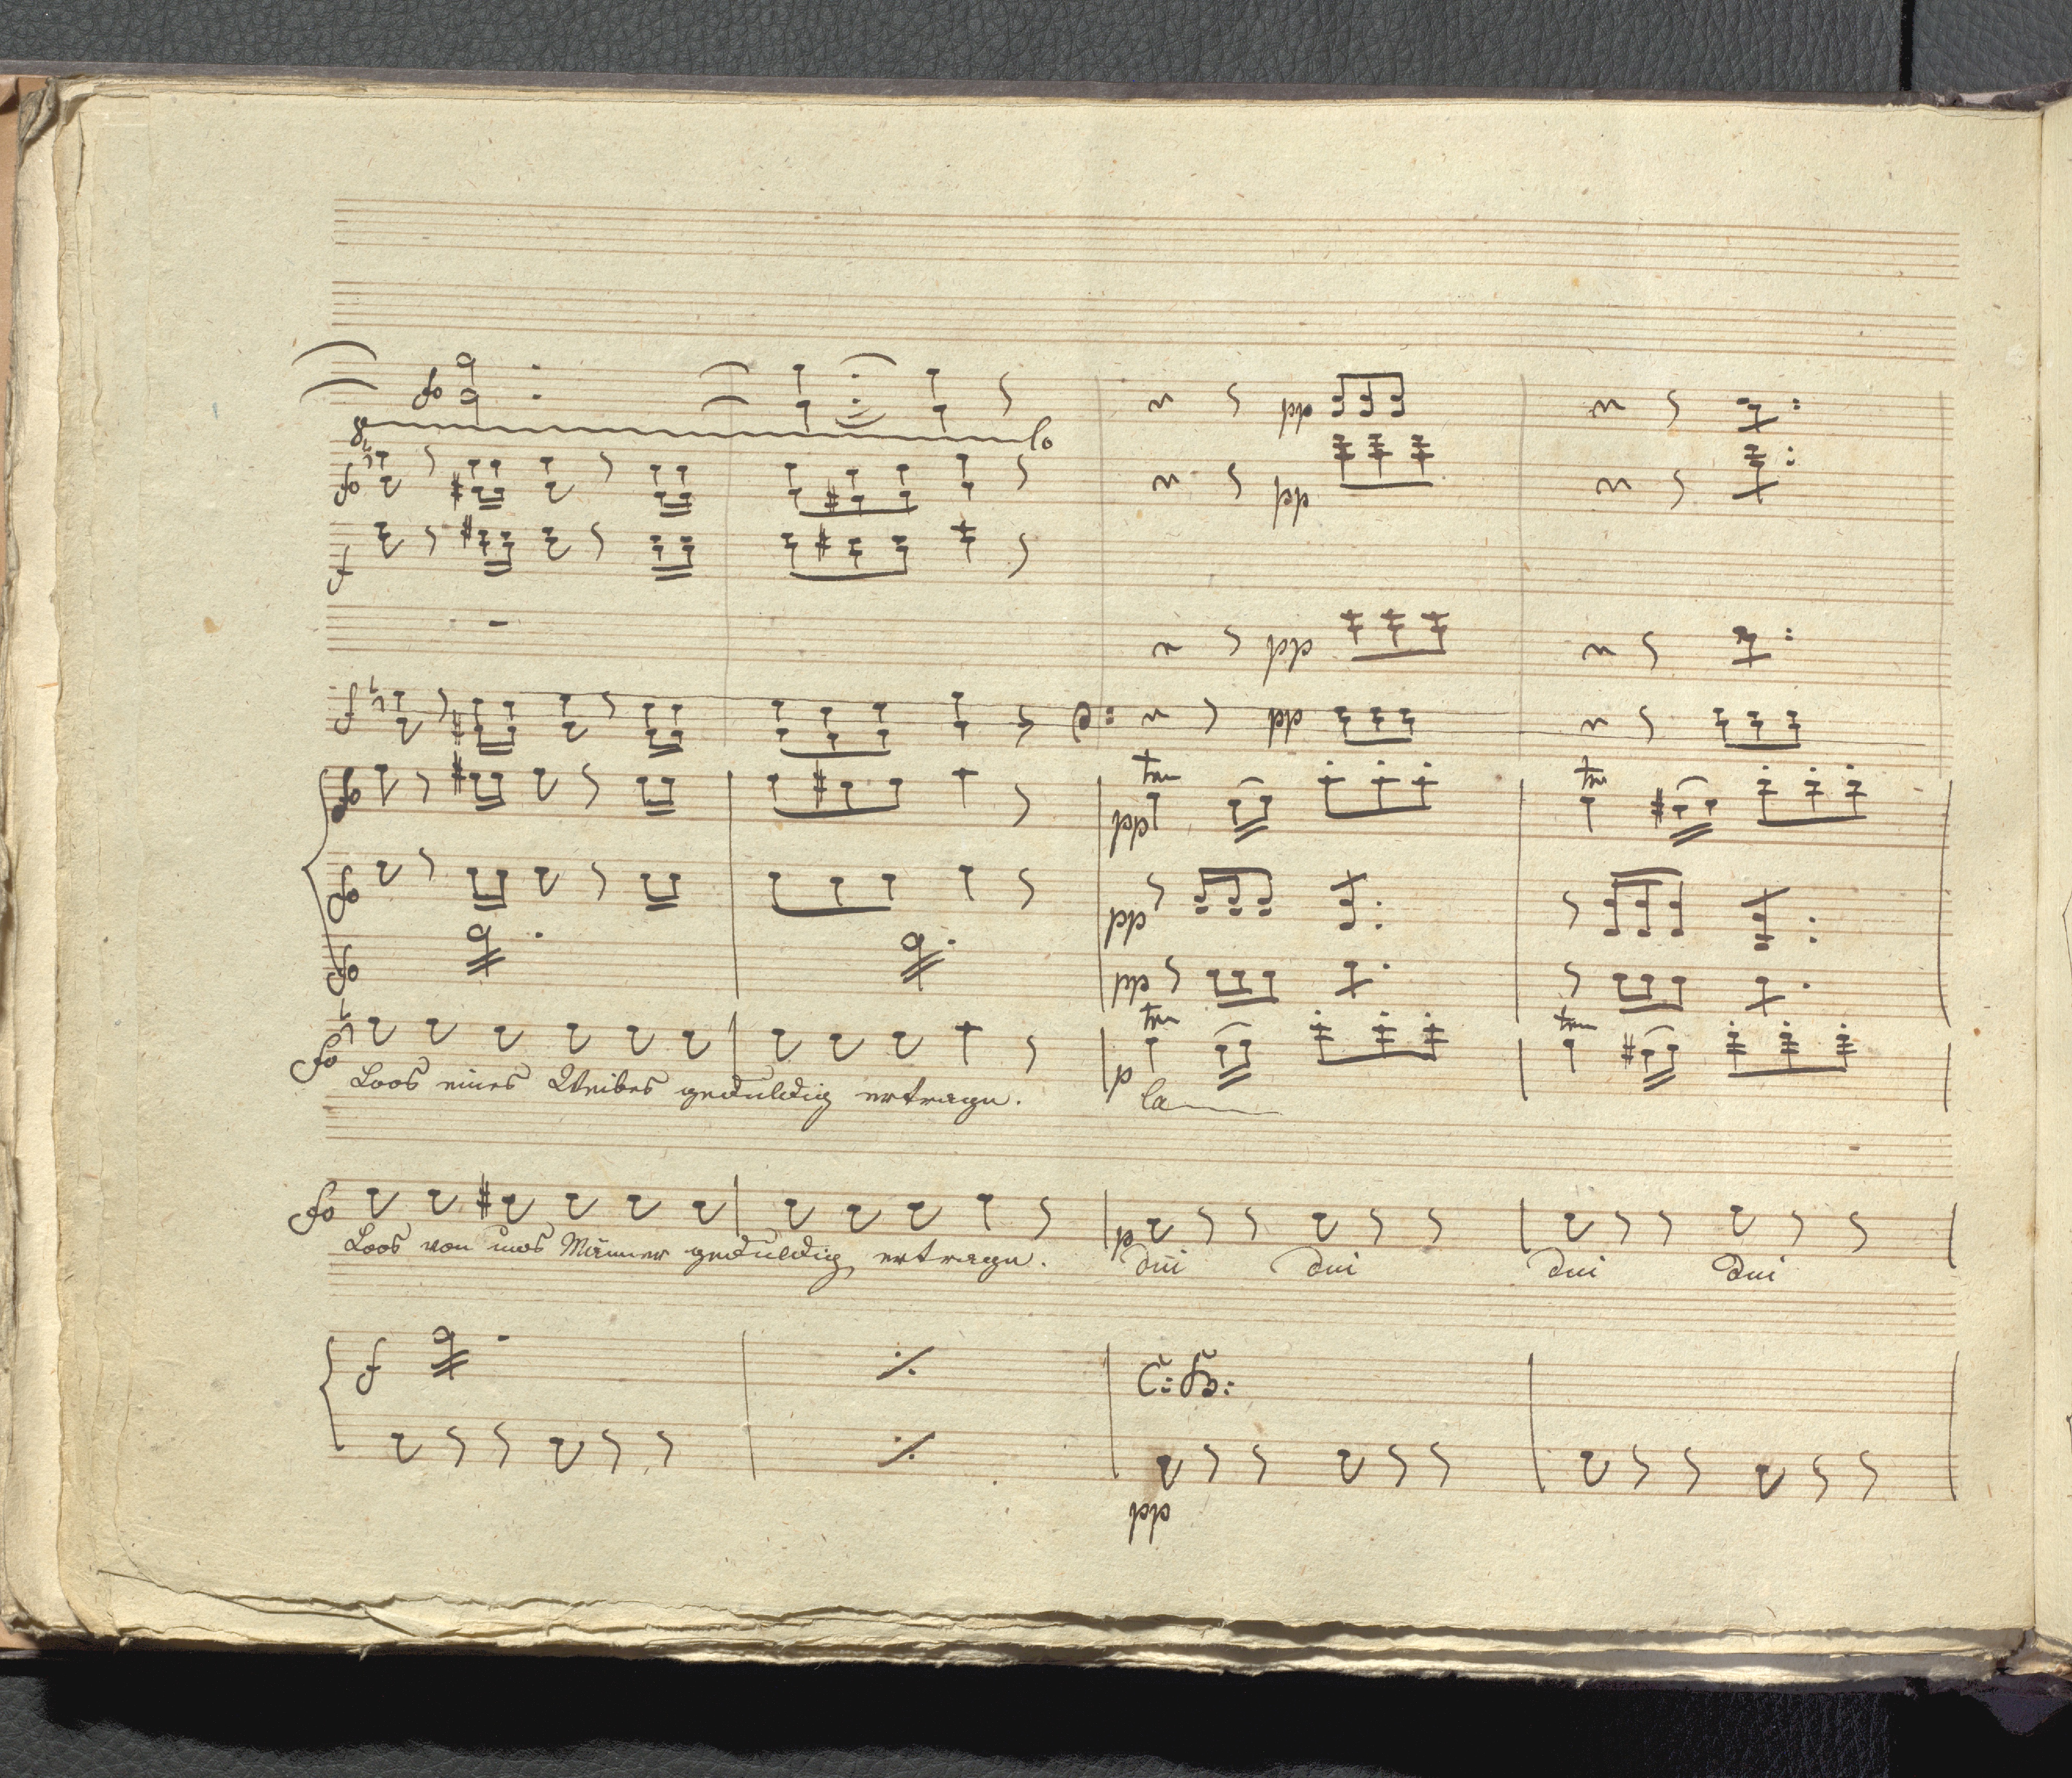 fo
8 lo
pp
fo
pp
f
pp
f
pp
fo tr tr
pp
fo
pp
fo
pp
tr tr
fo p
Loos eines Weibes geduldig ertragen. la
fo p
Loos von uns Männer geduldig ertragen. dui dui dui dui
f C: B:
pp